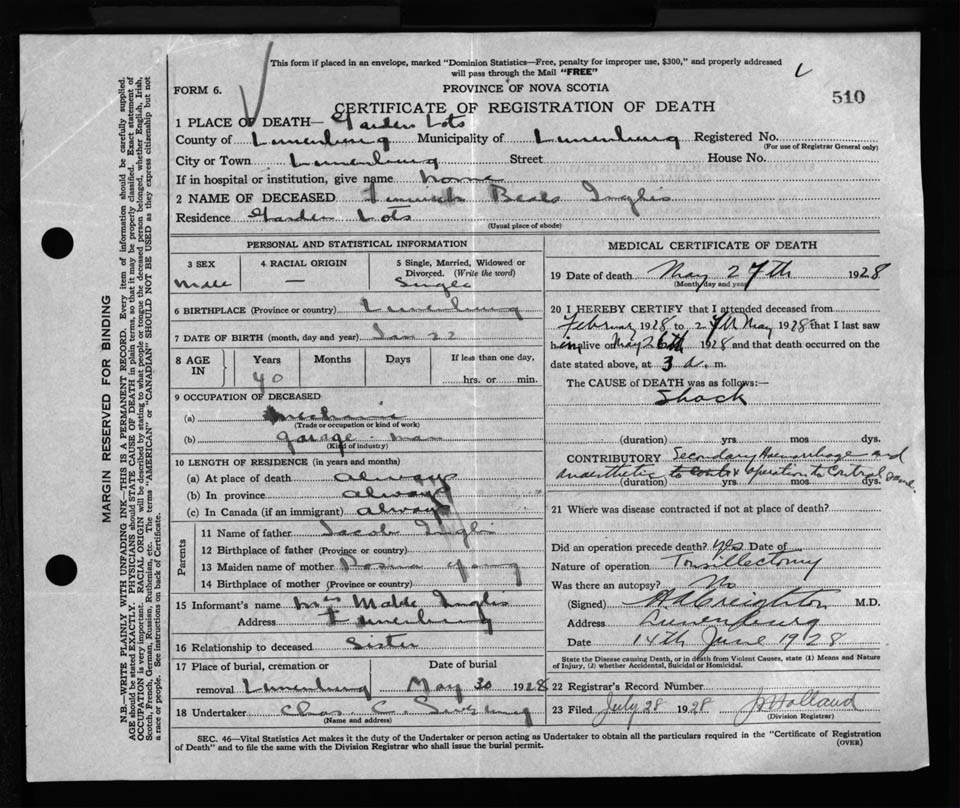 This form if placed in an envelope, marked "Dominion Statistics—Free, penalty for improper use, $300," and properly addressed
will pass through the Mail "FREE"
FORM 6.
PROVINCE OF NOVA SCOTIA
510
CERTIFICATE OF REGISTRATION OF DEATH
1 PLACE OF DEATH— Garden Lots
County of Lunenburg Municipality of Lunenburg Registered No.
(For use of Registrar General only)
City or Town Lunenburg Street House No.
If in hospital or institution, give name home
2 NAME OF DECEASED Beals Inglis
Residence Garden Lots
(Usual place of abode)
PERSONAL AND STATISTICAL INFORMATION
3 SEX 4 RACIAL ORIGIN 5 Single, Married, Widowed or
Divorced. (Write the word)
Male — Single
6 BIRTHPLACE (Province or country) Lunenburg
7 DATE OF BIRTH (month, day and year) Jan 22
8 AGE IN Years Months Days If less than one day,
40 hrs. or min.
9 OCCUPATION OF DECEASED
(a) Mechanic
(Trade or occupation or kind of work)
(b) garage man
(Kind of industry)
10 LENGTH OF RESIDENCE (in years and months)
(a) At place of death always
(b) In province always
(c) In Canada (if an immigrant) always
Parents
11 Name of father Jacob Inglis
12 Birthplace of father (Province or country)
13 Maiden name of mother Young
14 Birthplace of mother (Province or country)
15 Informant's name Mrs Inglis
Address Lunenburg
16 Relationship to deceased Sister
17 Place of burial, cremation or Date of burial
removal Lunenburg May 30 1928
18 Undertaker Chas C.
(Name and address)
MEDICAL CERTIFICATE OF DEATH
19 Date of death May 27th 1928
(Month, day and year)
20 I HEREBY CERTIFY that I attended deceased from
February 1928 to 27th May 1928 that I last saw
him alive on May 26th 1928 and that death occurred on the
date stated above, at 3 a. m.
The CAUSE of DEATH was as follows:—
Shock
(duration) yrs. mos. dys.
CONTRIBUTORY Secondary Haemorrhage and
anaesthetic to contr & operation to Control same.
(duration) yrs. mos. dys.
21 Where was disease contracted if not at place of death?
Did an operation precede death? Yes Date of
Nature of operation Tonsillectomy
Was there an autopsy? No
(Signed) Creighton M.D.
Address Lunenburg
Date 14th June 1928
State the Disease causing Death, or in death from Violent Causes, state (1) Means and Nature
of Injury, (2) whether Accidental, Suicidal or Homicidal.
22 Registrar's Record Number
23 Filed July 28 1928 Holland
(Division Registrar)
SEC. 46—Vital Statistics Act makes it the duty of the Undertaker or person acting as Undertaker to obtain all the particulars required in the "Certificate of Registration
of Death" and to file the same with the Division Registrar who shall issue the burial permit.
(OVER)
MARGIN RESERVED FOR BINDING
N.B.—WRITE PLAINLY WITH UNFADING INK—THIS IS A PERMANENT RECORD. Every item of information should be carefully supplied.
AGE should be stated EXACTLY. PHYSICIANS should STATE CAUSE OF DEATH in plain terms, so that it may be properly classified. Exact statement of
OCCUPATION is very important. RACIAL ORIGIN will be described by stating to what people or tongue the deceased person belonged, whether English, Irish,
Scotch, French, German, Russian, Ruthenian, etc. The terms "AMERICAN" or "CANADIAN" SHOULD NOT BE USED as they express citizenship but not
a race or people. See instructions on back of Certificate.